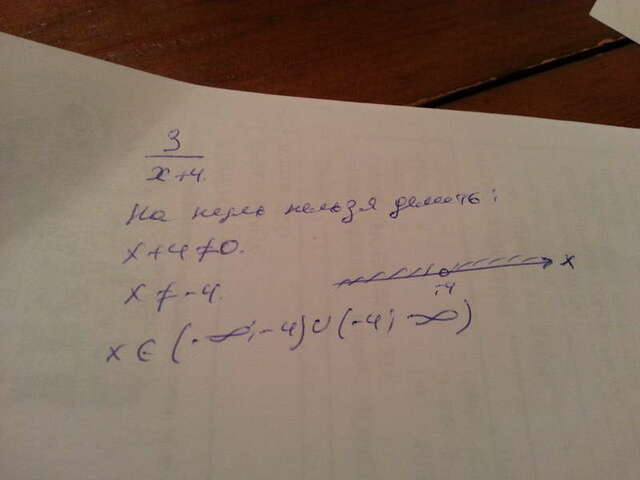 3
x+4.
На нуль нельзя делить:
x+4≠0.
x≠-4.
x
-4
x ∈ (-∞;-4)∪(-4; ∞)